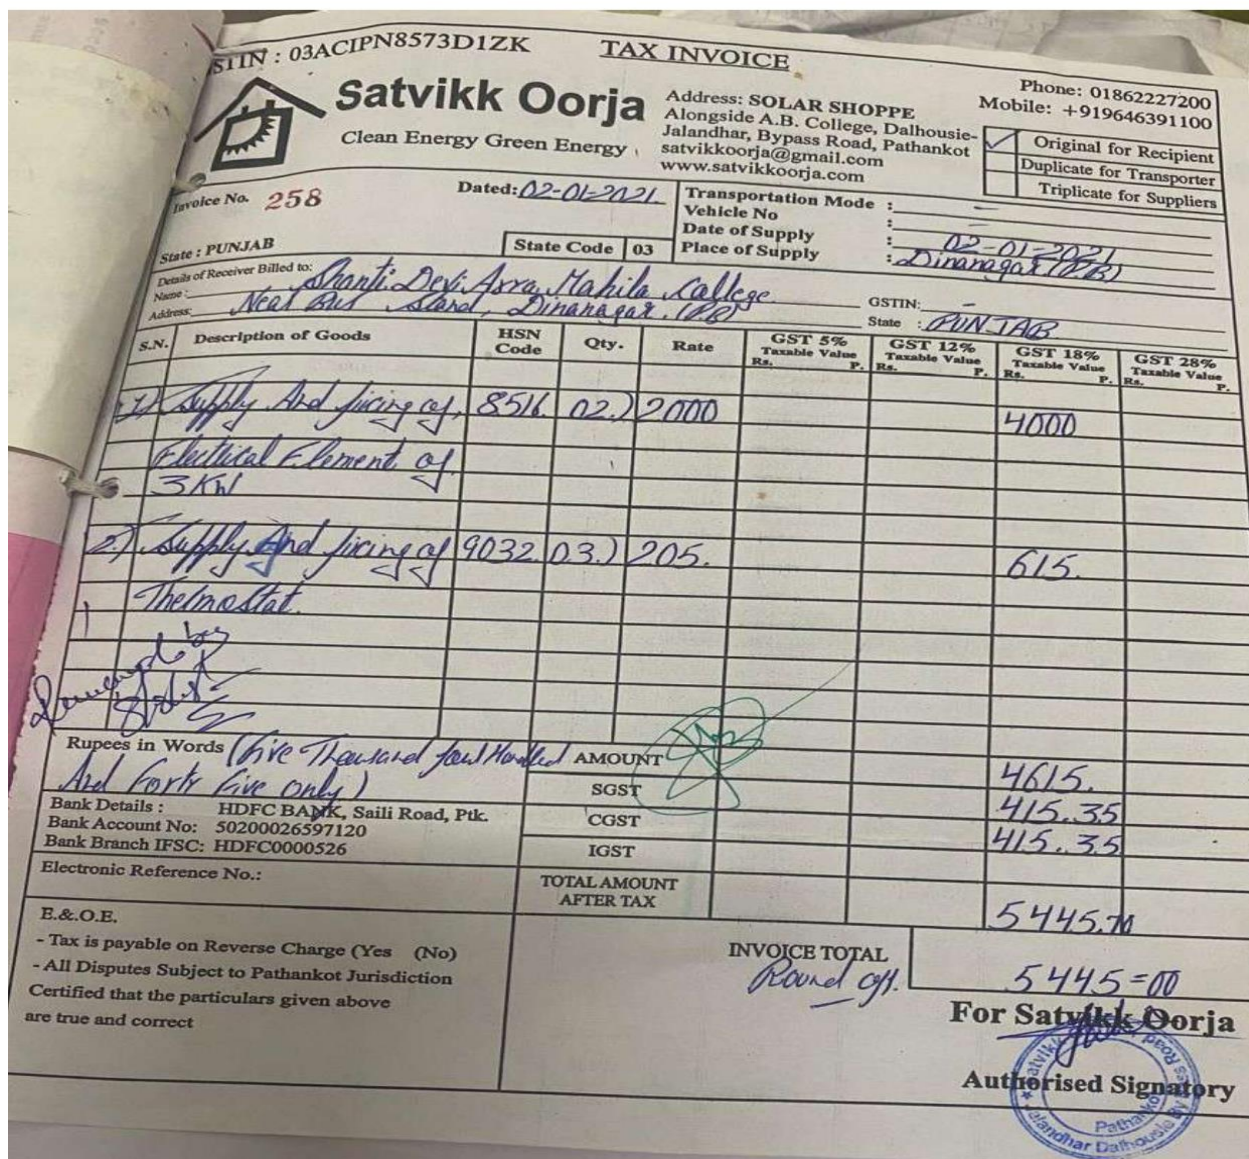 GSTIN : 03ACIPN8573D1ZK
TAX INVOICE
Phone: 01862227200
Mobile: +919646391100
Satvikk Oorja
Clean Energy Green Energy
Address: SOLAR SHOPPE
Alongside A.B. College, Dalhousie-
Jalandhar, Bypass Road, Pathankot
satvikkoorja@gmail.com
www.satvikkoorja.com
Original for Recipient
Duplicate for Transporter
Triplicate for Suppliers
Invoice No. 258
Dated: 02-01-2021
Transportation Mode : -
Vehicle No : -
Date of Supply : 02-01-2021
Place of Supply : Dinanagar (PB)
State : PUNJAB
State Code 03
Details of Receiver Billed to:
Name : Shanti Devi Arya Mahila College
Address: Near Bus Stand, Dinanagar. (PB)
GSTIN: -
State : PUNJAB
S.N. Description of Goods HSN Code Qty. Rate GST 5% Taxable Value Rs. P. GST 12% Taxable Value Rs. P. GST 18% Taxable Value Rs. P. GST 28% Taxable Value Rs. P.
1) Supply And fixing of 8516. 02.) 2000 4000
Electrical Element of
3KW
2.) Supply And fixing of 9032. 03.) 205. 615.
Thermostat.
Rupees in Words (Five Thousand four Hundred
And Forty Five only)
AMOUNT 4615.
SGST 415.35
CGST 415.35
IGST
Bank Details : HDFC BANK, Saili Road, Ptk.
Bank Account No: 50200026597120
Bank Branch IFSC: HDFC0000526
Electronic Reference No.:
TOTAL AMOUNT
AFTER TAX 5445.70
E.&.O.E.
- Tax is payable on Reverse Charge (Yes (No)
- All Disputes Subject to Pathankot Jurisdiction
Certified that the particulars given above
are true and correct
INVOICE TOTAL
Round off. 5445=00
For Satvikk Oorja
Authorised Signatory
Satvikk
Road
Pathankot
Jalandhar Dalhousie By